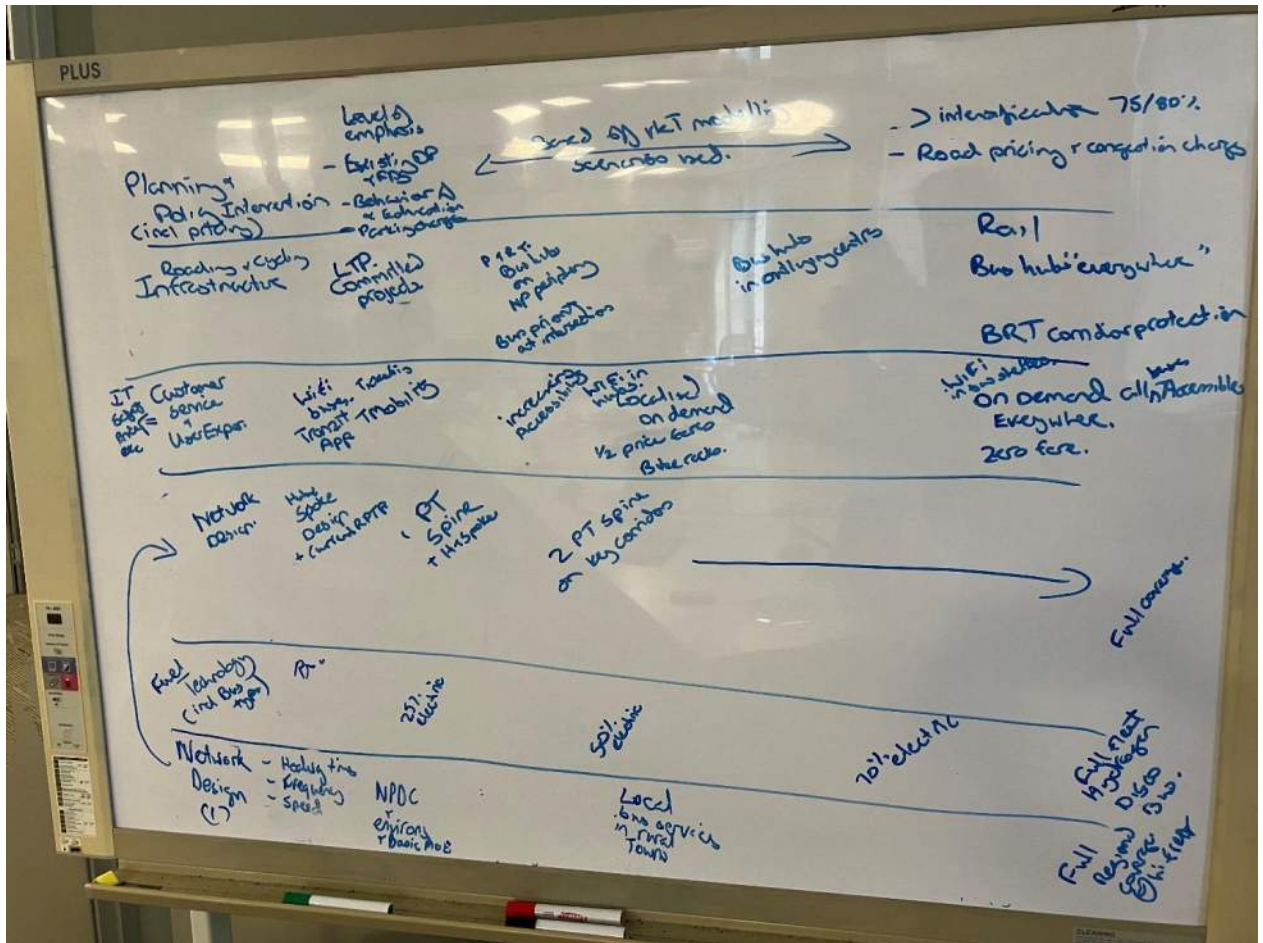 PLUS
Planning &
Policy Intervention
(incl pricing)
Level of
emphasis
- Existing DP
& FDS
- Behaviour Δ
& Education
- Parking charges
Based off VKT modelling
scenarios used.
- > intensification 75/80%
- Road pricing & congestion charge
Roading & Cycling
Infrastructure
LTP.
Committed
projects
Bus hub
on
NP periphery
Bus priority
at intersections
Bus hubs
in outlying centres
Rail
Bus hubs "everywhere"
BRT corridor protection
IT
etc
Customer
Service
+
User Exper.
WiFi
buses. Tracking
Transit
App Tmobility
increasing
accessibility
WiFi in
hubs.
Localised
on demand
1/2 price fares
Bike racks.
WiFi
in bus shelters
On Demand all buses Accessible
Everywhere.
Zero fare.
Network
Design.
Hub &
Spoke
Design
+ Current RPTP
PT
Spine
+ H+Spoke
2 PT Spine
on key corridors
Full coverage.
Fuel
Technology
(incl Bus
type)
25%
electric
50%
electric
70% electric
Full Fleet
Hydrogen
DISCO
Bus.
Network
Design
(1)
- Hours
- Frequency
- Speed
NPDC
+
environs
+ basic
Local
bus services
in rural
Towns
Full
Region
Coverage
@ hi freq